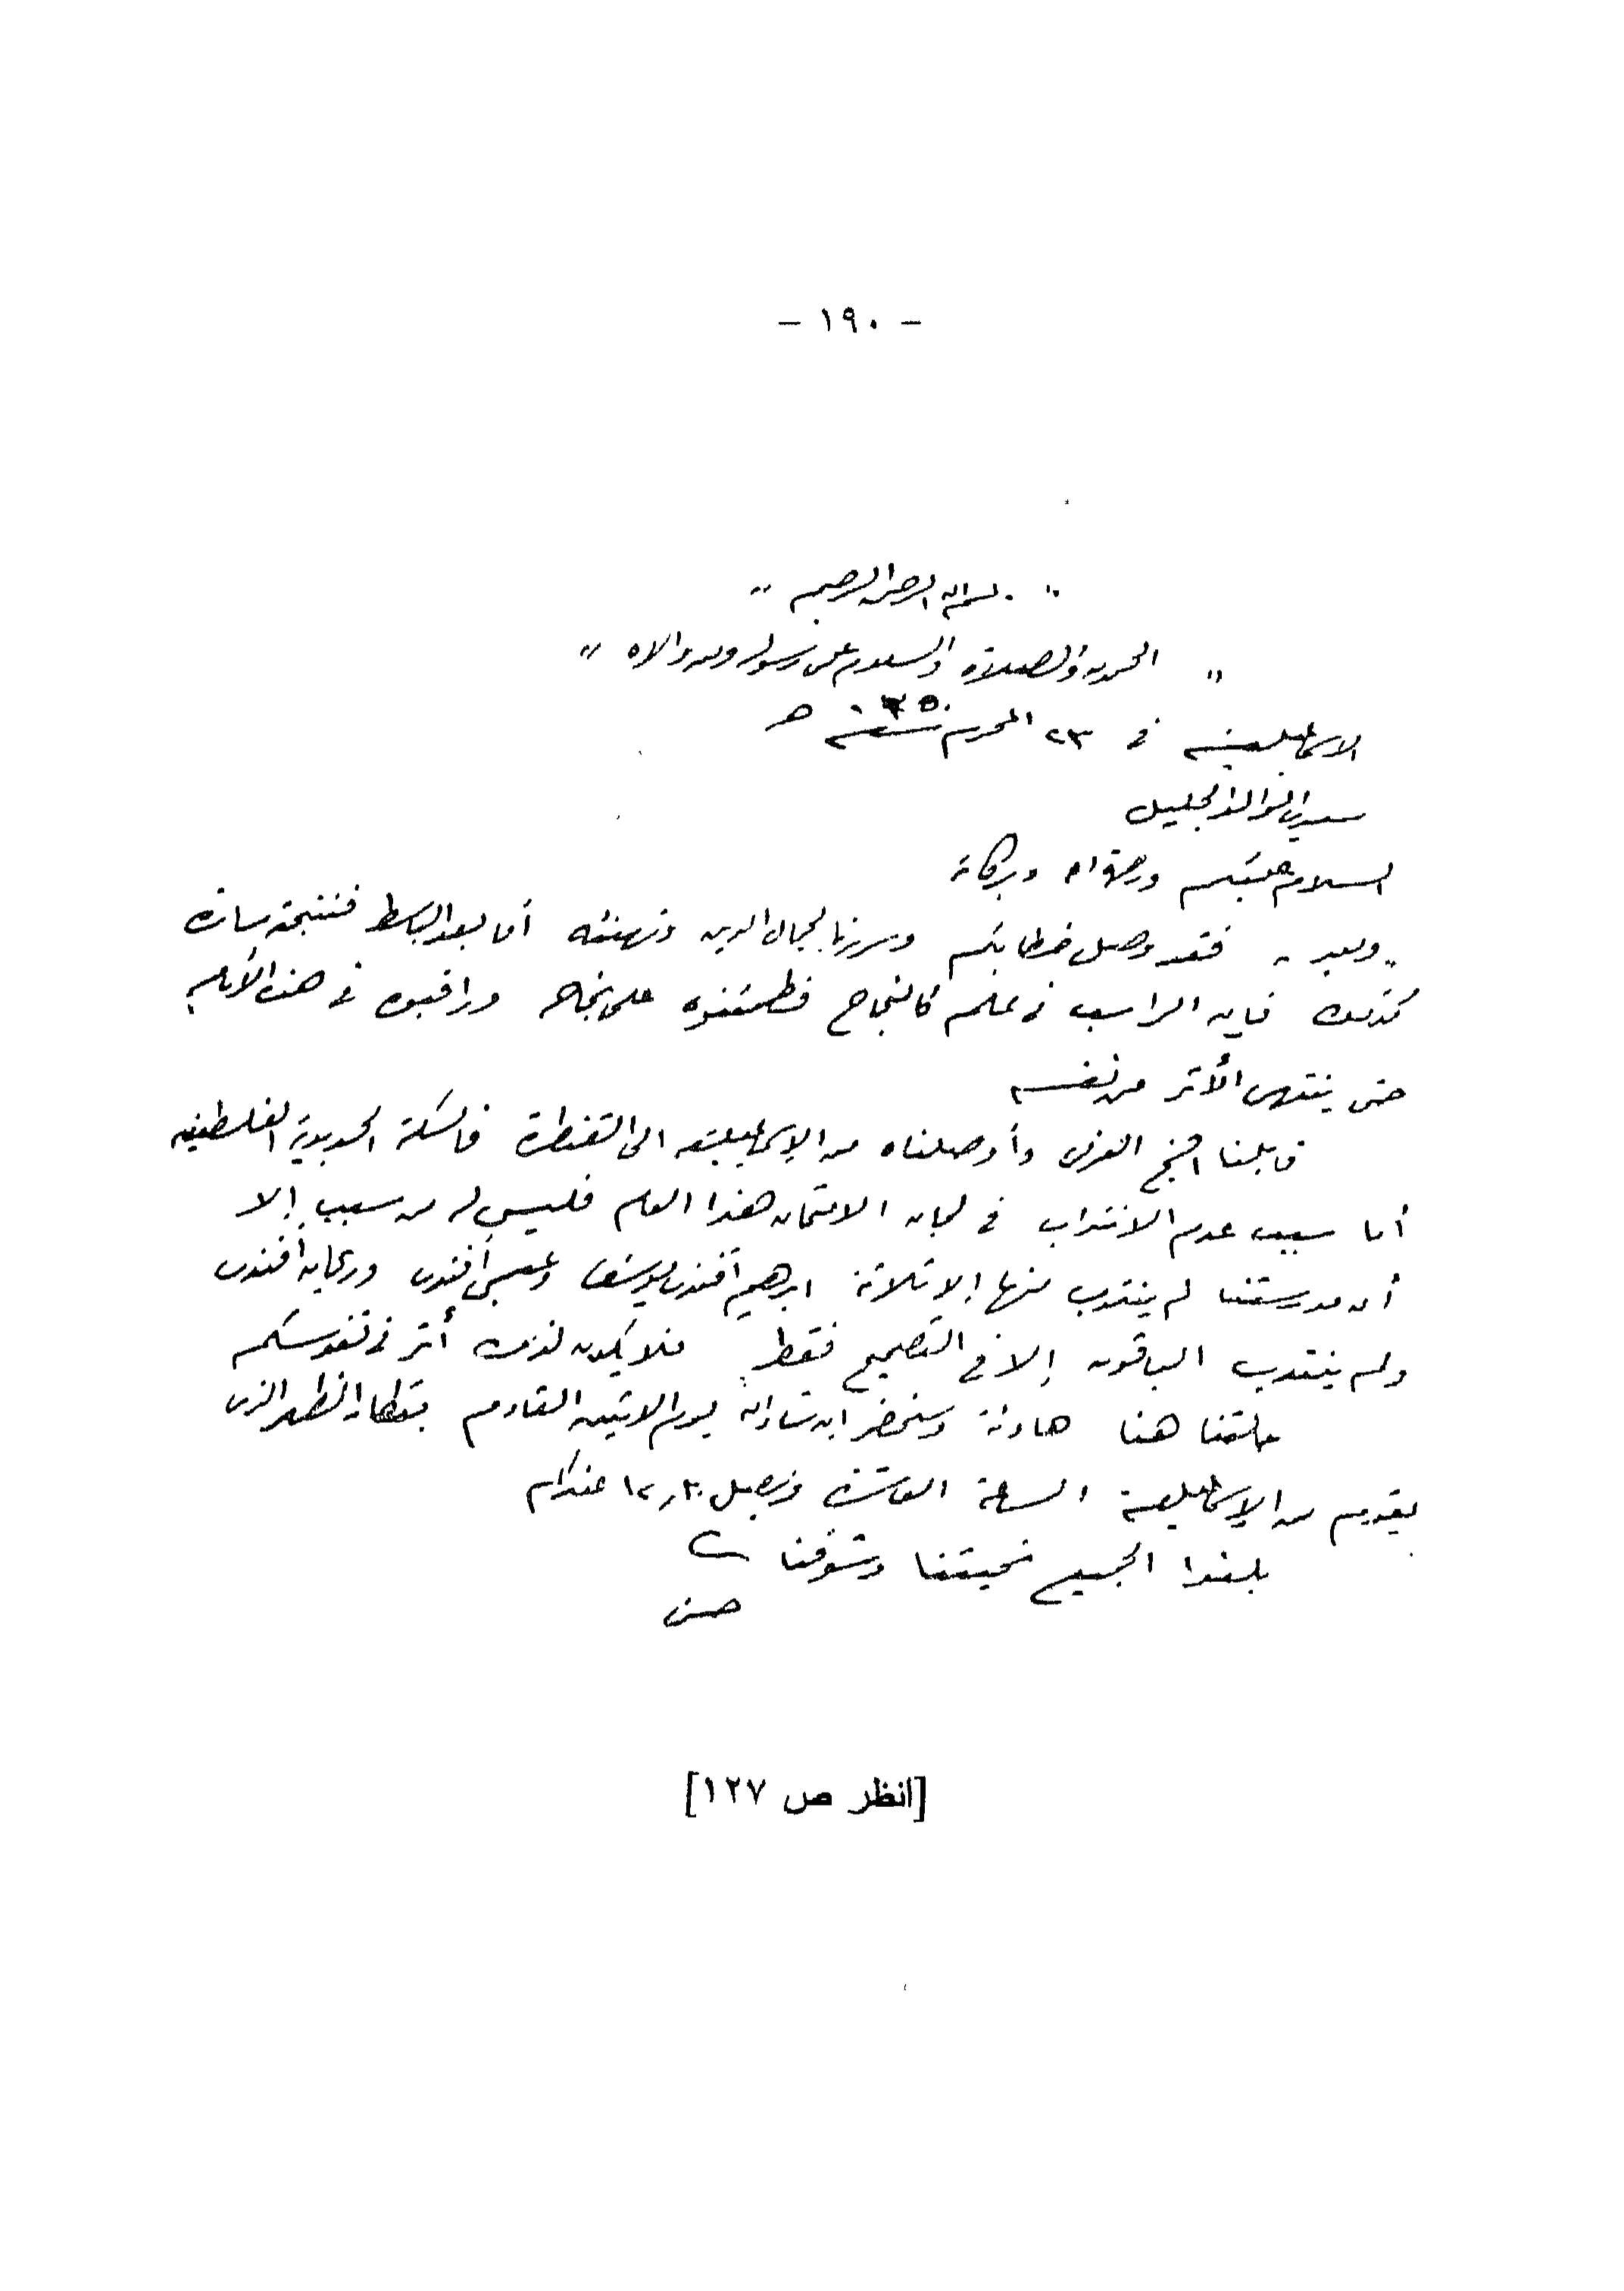 - ١٩٠ -
" بسم الله الرحمن الرحيم "
" الحمد لله والصلاة والسلام على رسول الله ومن والاه "
الاسماعيلية في ٢٣ المحرم سنة ١٣٥٠ هـ
سيدي الوالد الجليل
السلام عليكم ورحمة الله وبركاته
وبعد - فقد وصل خطابكم وسررنا لجمال الدين ونهنئه أما عبد الباسط فنتيجته سارة
كذلك فإن الراسب في علم كالنجاح فطمئنوه على نجاحه وراقبوه في هذه الأيام
حتى ينتهي الأثر من نفسه
قابلنا الشيخ الغزي وأوصلناه من الإسماعيلية الى القنطرة فالسكة الحديدية الفلسطينية
أما سبب عدم الانتداب في لجان الامتحان هذا العام فليس له من سبب إلا
أن مدرستنا لم ينتدب منها إلا ثلاثة ابرهيم أفندي يوسف وعيسى أفندي وريحان أفندي
ولم ينتدب الباقون إلا في التصحيح فقط فلا يكون لذلك أثر في نفوسكم
حالتنا هنا هادئة وسنحضر ان شاء الله يوم الاثنين القادم بقطار الظهر الذي
يقوم من الإسماعيلية الساعة العاشرة ونصل ١٢٫٣٠ عندكم
بلغوا الجميع تحيتنا وشوقنا
حسن
[انظر ص ١٢٧]